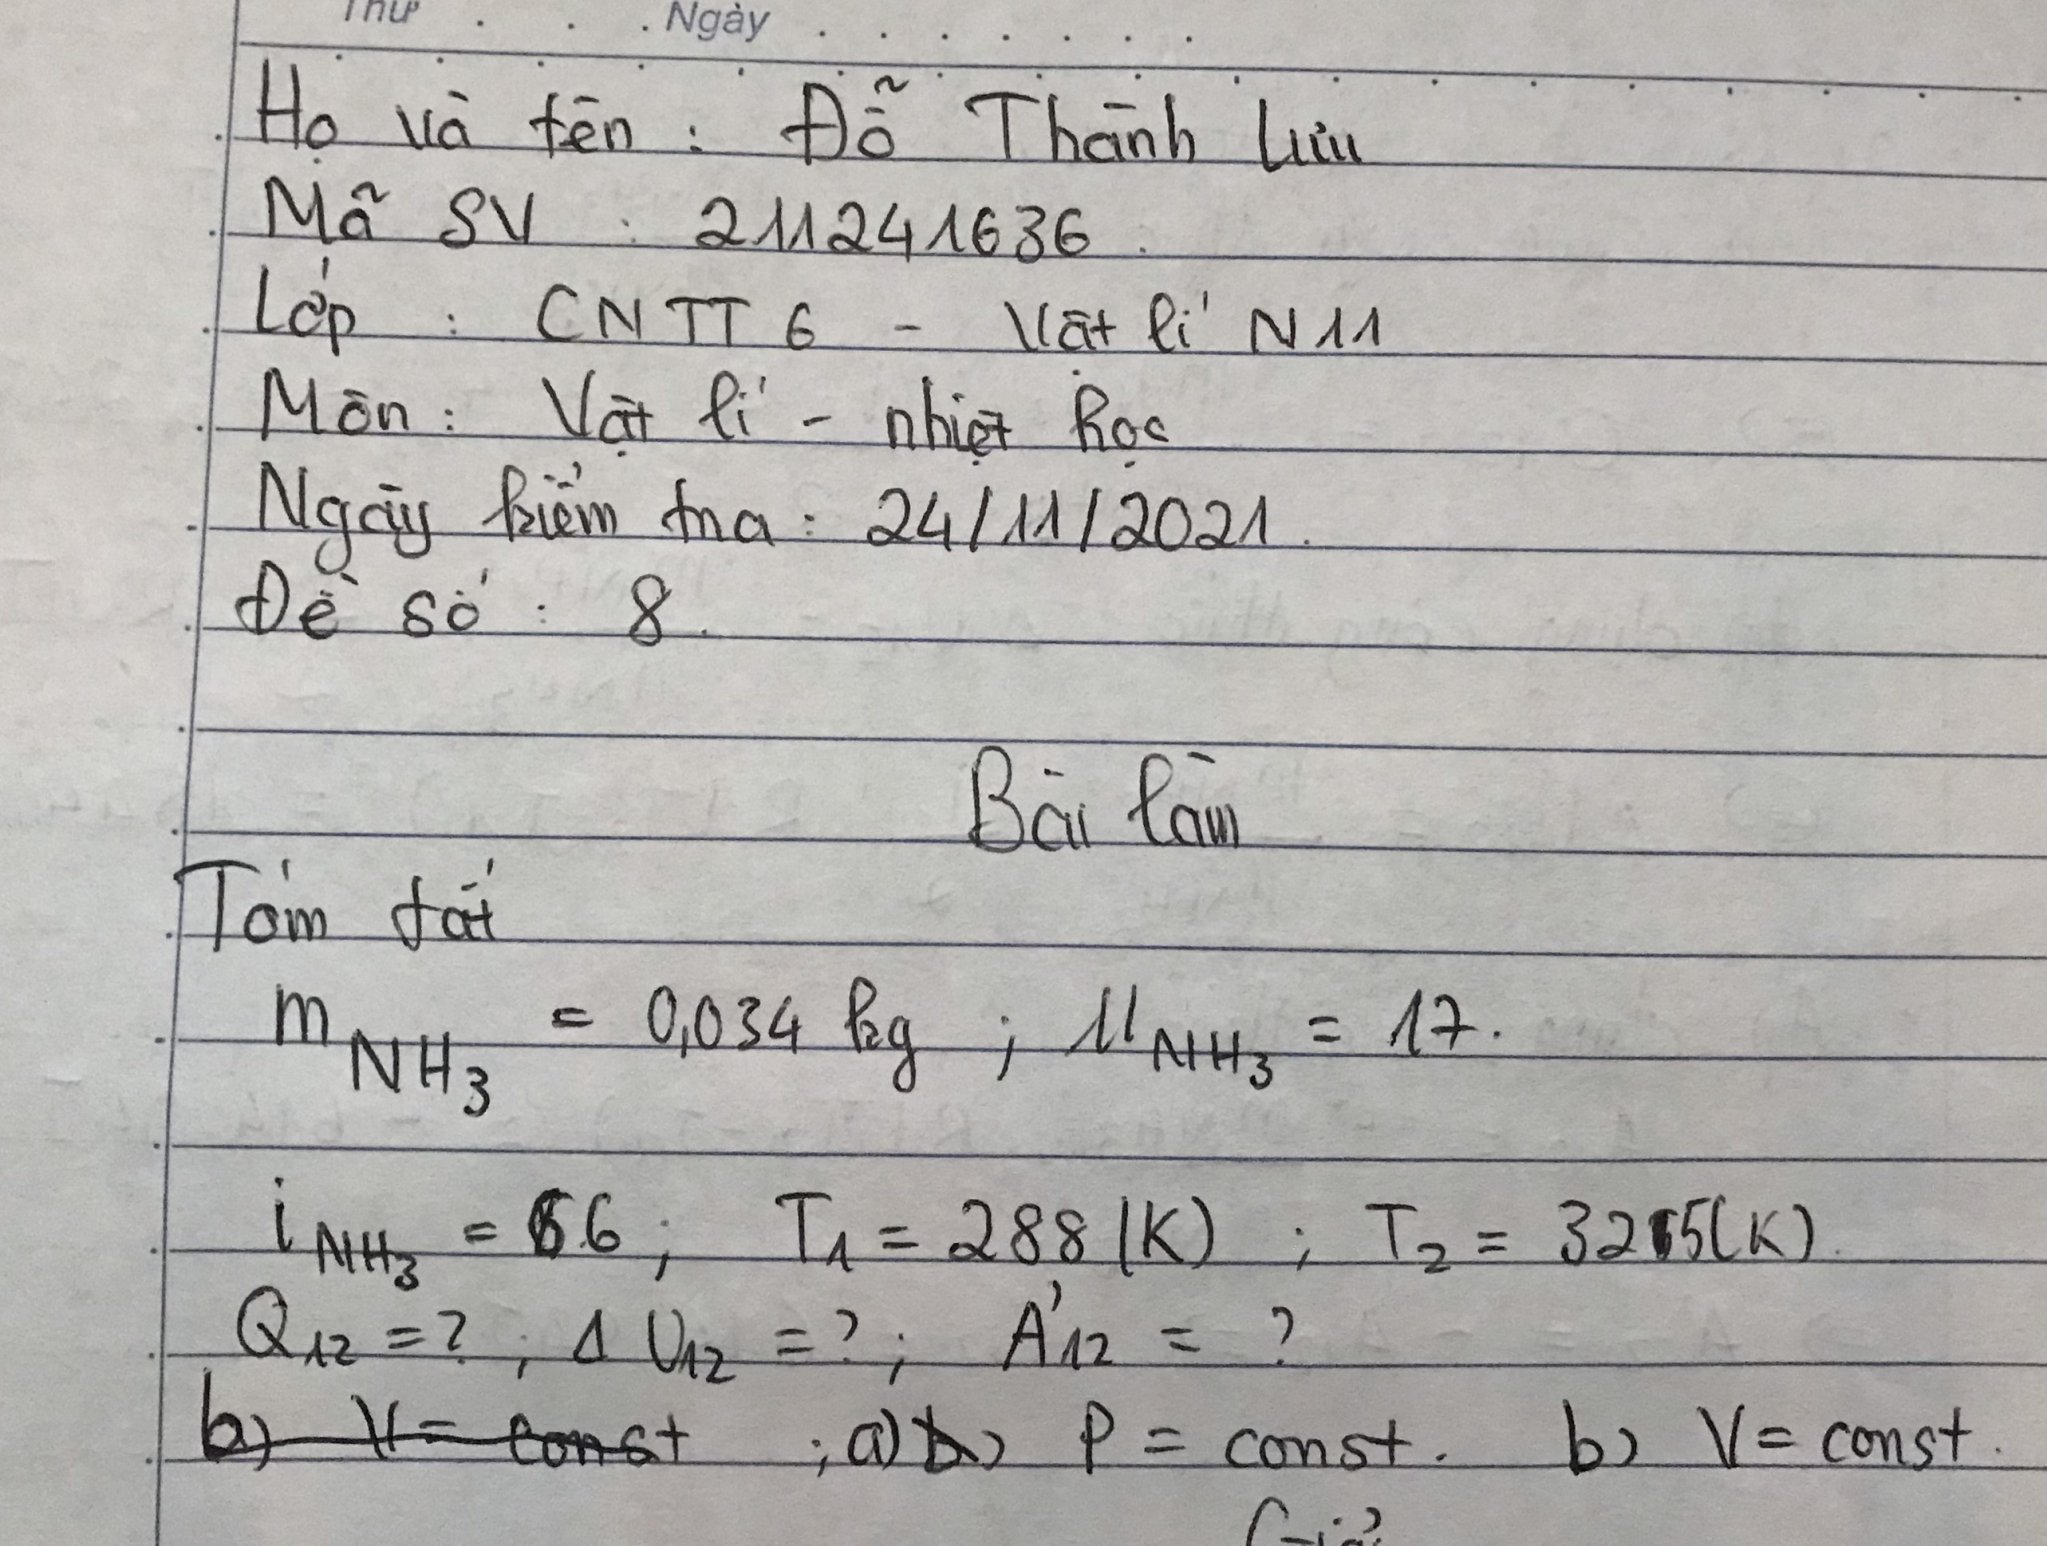 Thứ . . . Ngày . . . . . . .
Họ và tên : Đỗ Thành Lưu
Mã SV : 211241636.
Lớp : CNTT6 - Vật lí N11
Môn : Vật lí - nhiệt học
Ngày kiểm tra : 24/11/2021.
Đề số : 8.
Bài làm
Tóm tắt
m NH3 = 0,034 kg ; μ NH3 = 17.
i NH3 = 6 ; T1 = 288 (K) ; T2 = 325(K).
Q12 = ? ; Δ U12 = ? ; A'12 = ?
b) V = const ; a) b) P = const. b) V = const.
Giải